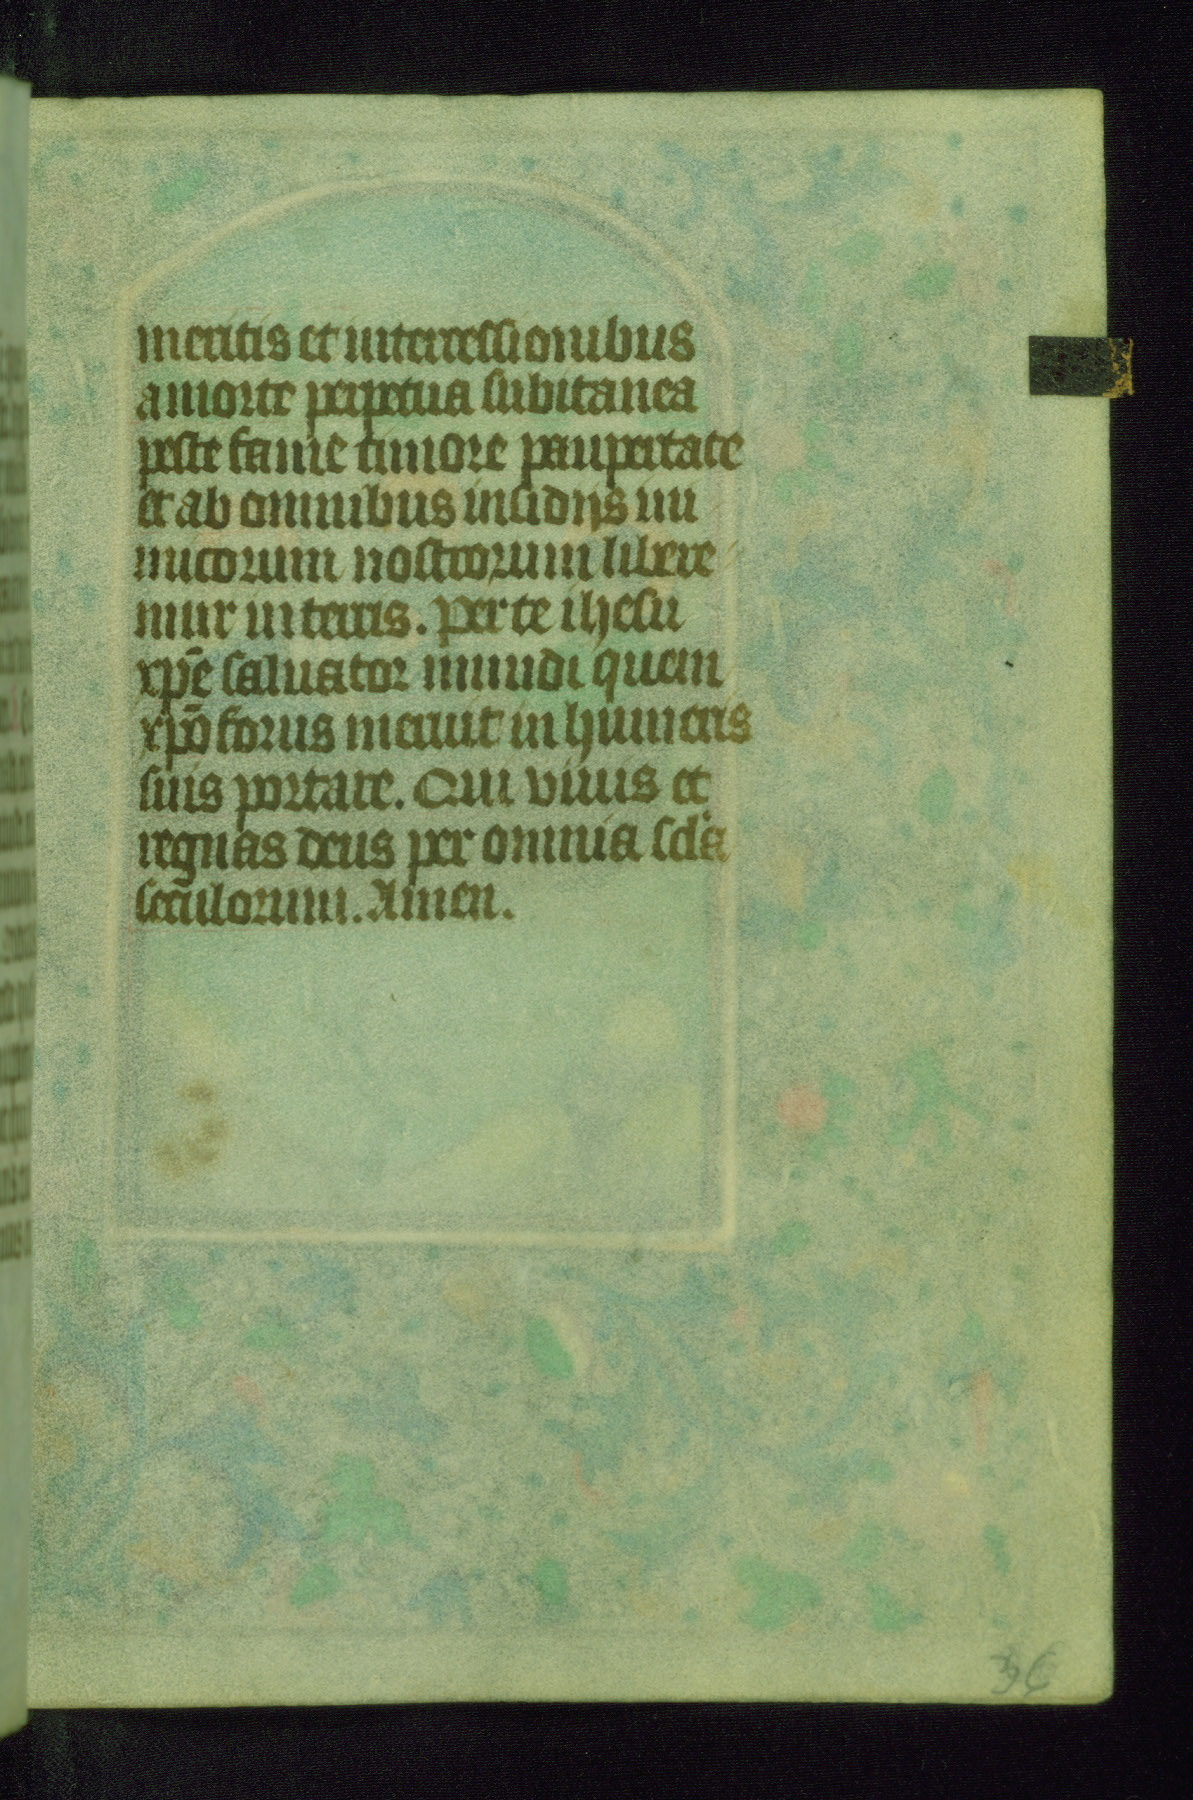 meritis et intercessionibus
a morte perpetua subitanea
peste fame timore paupertate
et ab omnibus insidijs ini
micorum nostrorum libere
mur in terris. Per te ihesu
xpē saluator mundi quem
xpōforus meruit in humeris
suis portare. Qui viuis et
regnas deus per omnia scl'a
seculorum. Amen.
36